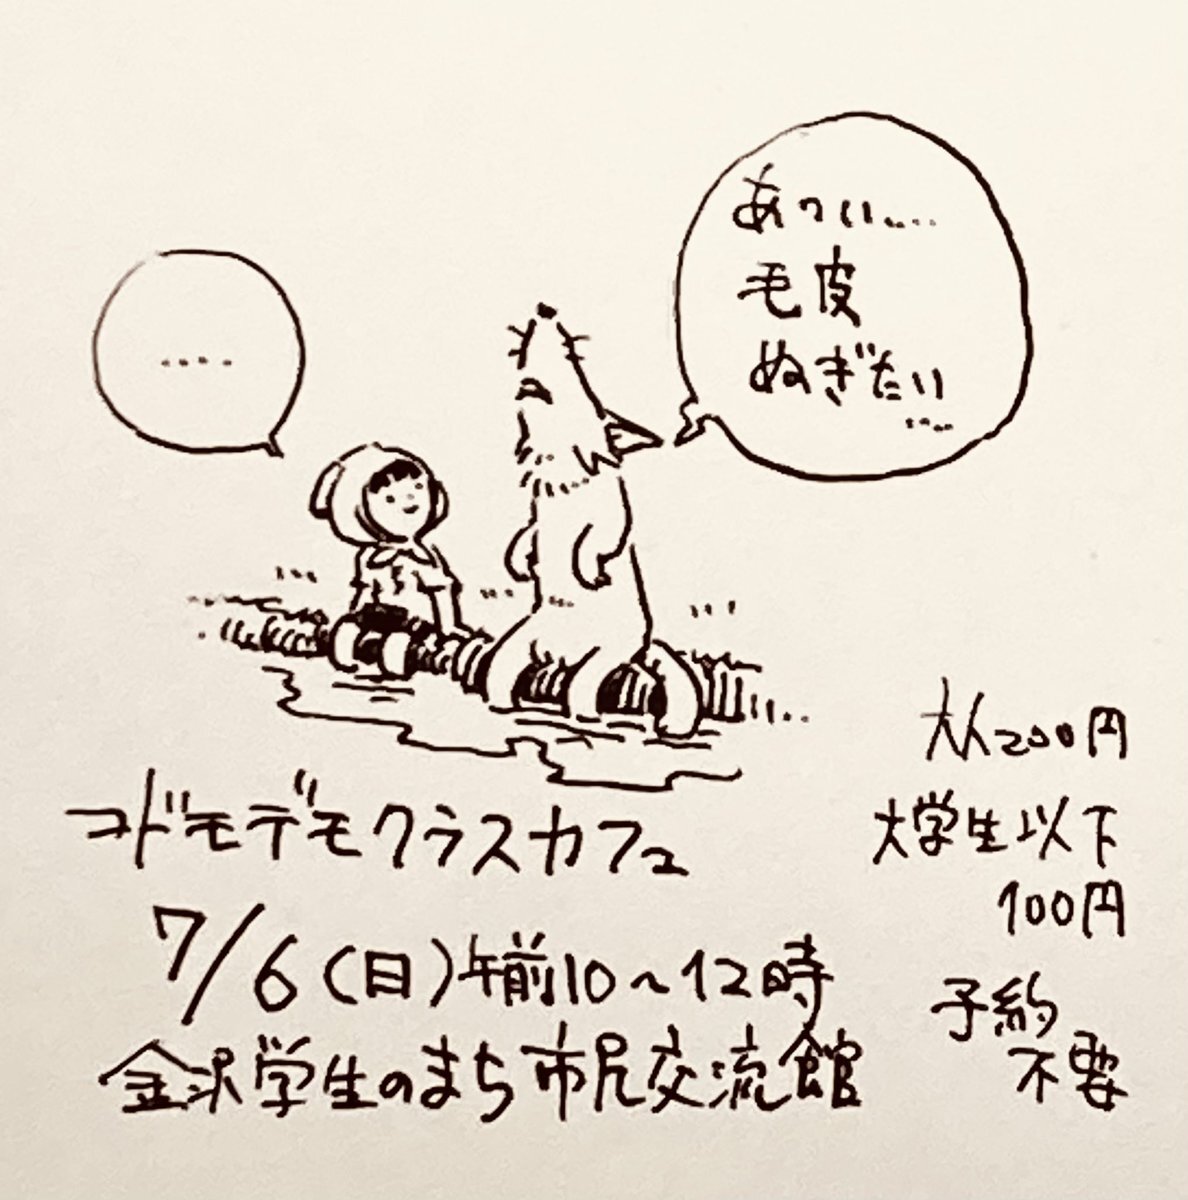 ‥‥
あつい‥‥
毛皮
ぬぎたい
‥‥
大人200円
大学生以下
100円
予約
不要
コドモデモクラスカフェ
7/6(日)午前10~12時
金沢学生のまち市民交流館